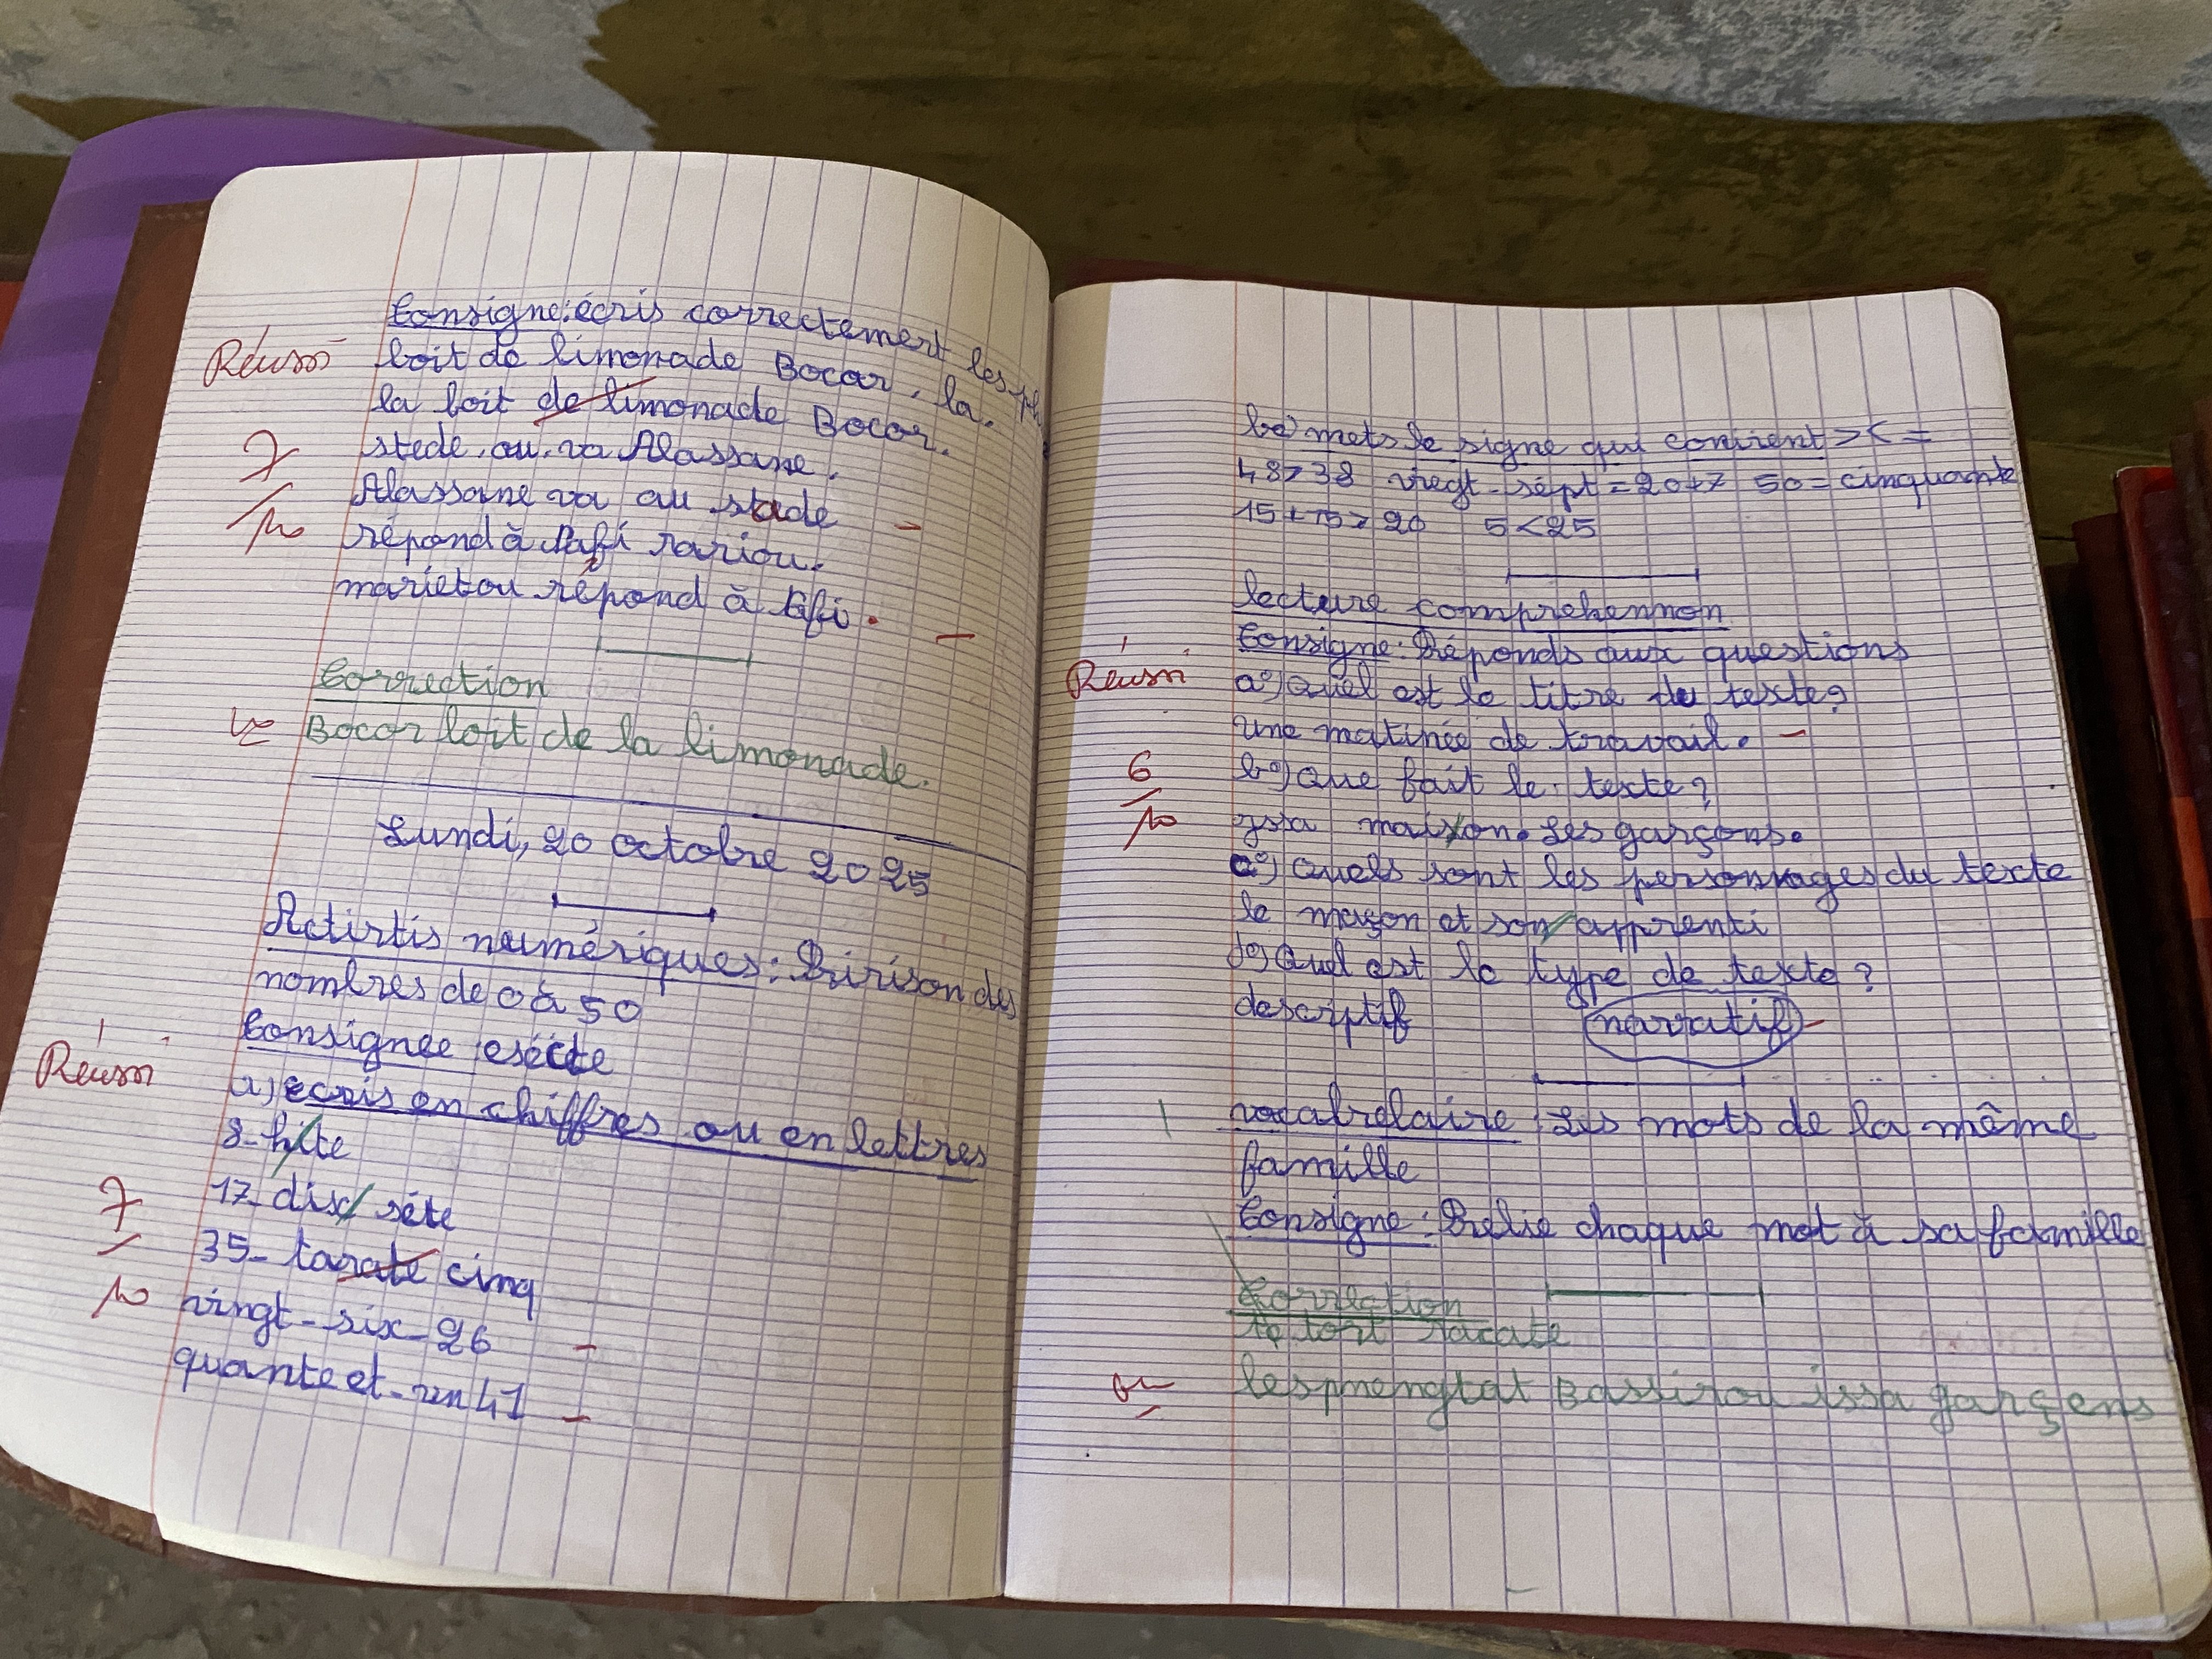 Consigne: écris correctement les ph
Réussi
boit de limonade Bocar, la.
la boit de limonade Bocar.
stede. ou. va Alassane.
7
Alassane va au stade
10
répond à Rafi rariou.
marietou répond à Rafi.
Correction
Bocar boit de la limonade.
Lundi, 20 octobre 2025
Actirtis numériques: Ririson des
nombres de 0 à 50
Consignee esécte
Réussi
a) ecris en chiffres ou en lettres
8-hite
17-dix séte
7
35-tarate cinq
10
vingt-six-26
quante et-un 41
b) mets le signe qui conrient > < =
48>38 viegt-sept=20+7 50=cinquante
15+15>20 5<25
lecture comprehennon
Consigne: Réponds aux questions
Réussi
a°) Quel est le titre du texte?
une matinée de travail.
6
b°) Que fait le texte?
10
yssa maison. Les garçons.
c°) Quels sont les personnages du texte
le maçon et son apprenti
d°) Quel est le type de texte?
descriptif narratif
vocabrelaire: Les mots de la même
famille
Consigne: Relie chaque mot à sa famille
Correction
te tort racate
lespmengtat Bassirou issa garçens